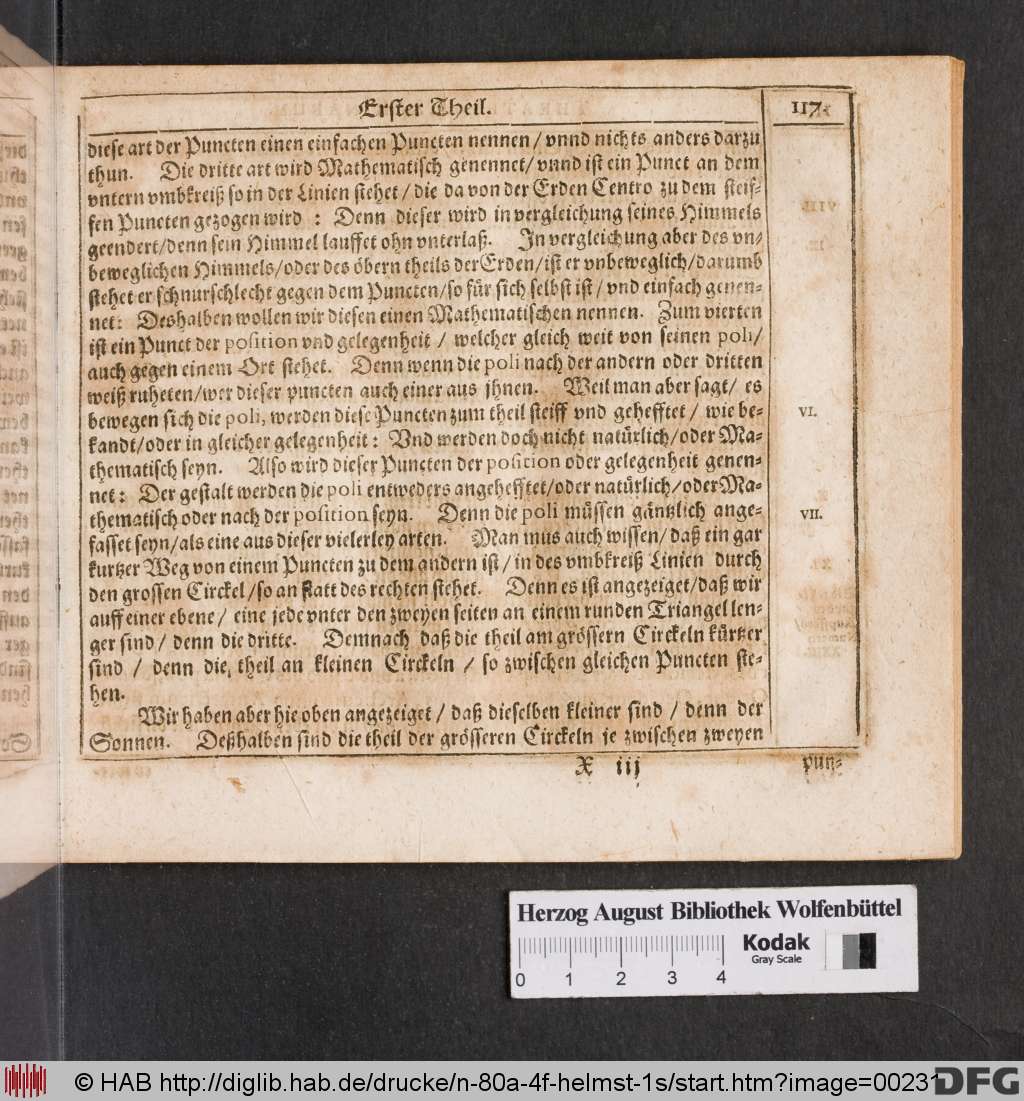 Erster Theil.
117.
diese art der Puncten einen einfachen Puncten nennen / vnnd nichts anders darzu
thun. Die dritte art wird Mathematisch genennet / vnnd ist ein Punct an dem
vntern vmbkreiß so in der Linien stehet / die da von der Erden Centro zu dem steif-
fen Puncten gezogen wird : Denn dieser wird in vergleichung seines Himmels
geendert / denn sein Himmel lauffet ohn vnterlaß. In vergleichung aber des vn-
beweglichen Himmels / oder des öbern theils der Erden / ist er vnbeweglich / darumb
stehet er schnurschlecht gegen dem Puncten / so für sich selbst ist / vnd einfach genen-
net: Deshalben wollen wir diesen einen Mathematischen nennen. Zum vierten
ist ein Punct der position vnd gelegenheit / welcher gleich weit von seinen poli /
auch gegen einem Ort stehet. Denn wenn die poli nach der andern oder dritten
weiß ruheten / wer dieser puncten auch einer aus jhnen. Weil man aber sagt / es
bewegen sich die poli, werden diese Puncten zum theil steiff vnd gehefftet / wie be-
VI.
kandt / oder in gleicher gelegenheit : Vnd werden doch nicht natürlich / oder Ma-
thematisch seyn. Also wird dieser Puncten der position oder gelegenheit genen-
net : Der gestalt werden die poli entweders angehefftet / oder natürlich / oder Ma-
thematisch oder nach der position seyn. Denn die poli müssen gäntzlich ange-
VII.
fasset seyn / als eine aus dieser vielerley arten. Man mus auch wissen / daß ein gar
kurtzer Weg von einem Puncten zu dem andern ist / in des vmbkreiß Linien durch
den grossen Circkel / so an statt des rechten stehet. Denn es ist angezeiget / daß wir
auff einer ebene / eine jede vnter den zweyen seiten an einem runden Triangel len-
ger sind / denn die dritte. Demnach daß die theil am grössern Circkeln kürtzer
sind / denn die theil an kleinen Circkeln / so zwischen gleichen Puncten ste-
hen.
Wir haben aber hie oben angezeiget / daß dieselben kleiner sind / denn der
Sonnen. Deßhalben sind die theil der grösseren Circkeln je zwischen zweyen
X iij
pun-
Herzog August Bibliothek Wolfenbüttel
0 1 2 3 4
Kodak
Gray Scale
© HAB http://diglib.hab.de/drucke/n-80a-4f-helmst-1s/start.htm?image=00231
DFG